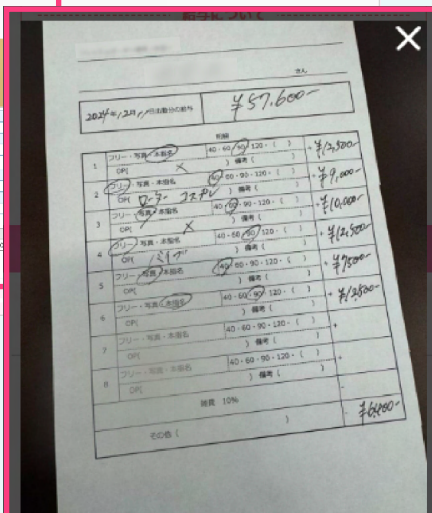 給与について
さん
2024年12月11日出勤分の給与 ¥57,600-
明細
1 フリー・写真・本指名 40・60・90・120・( ) + ¥12,500-
OP( × ) 備考( )
2 フリー・写真・本指名 40・60・90・120・( ) + ¥9,000-
OP( ローター コスプレ ) 備考( )
3 フリー・写真・本指名 40・60・90・120・( ) + ¥10,000-
OP( × ) 備考( )
4 フリー・写真・本指名 40・60・90・120・( ) + ¥12,500-
OP( バイブ ) 備考( )
5 フリー・写真・本指名 40・60・90・120・( ) + ¥7,500-
OP( ) 備考( )
6 フリー・写真・本指名 40・60・90・120・( ) + ¥12,500-
OP( ) 備考( )
7 フリー・写真・本指名 40・60・90・120・( ) +
OP( ) 備考( )
8 フリー・写真・本指名 40・60・90・120・( ) +
OP( ) 備考( )
雑費 10% -
その他( ) - ¥6,400-